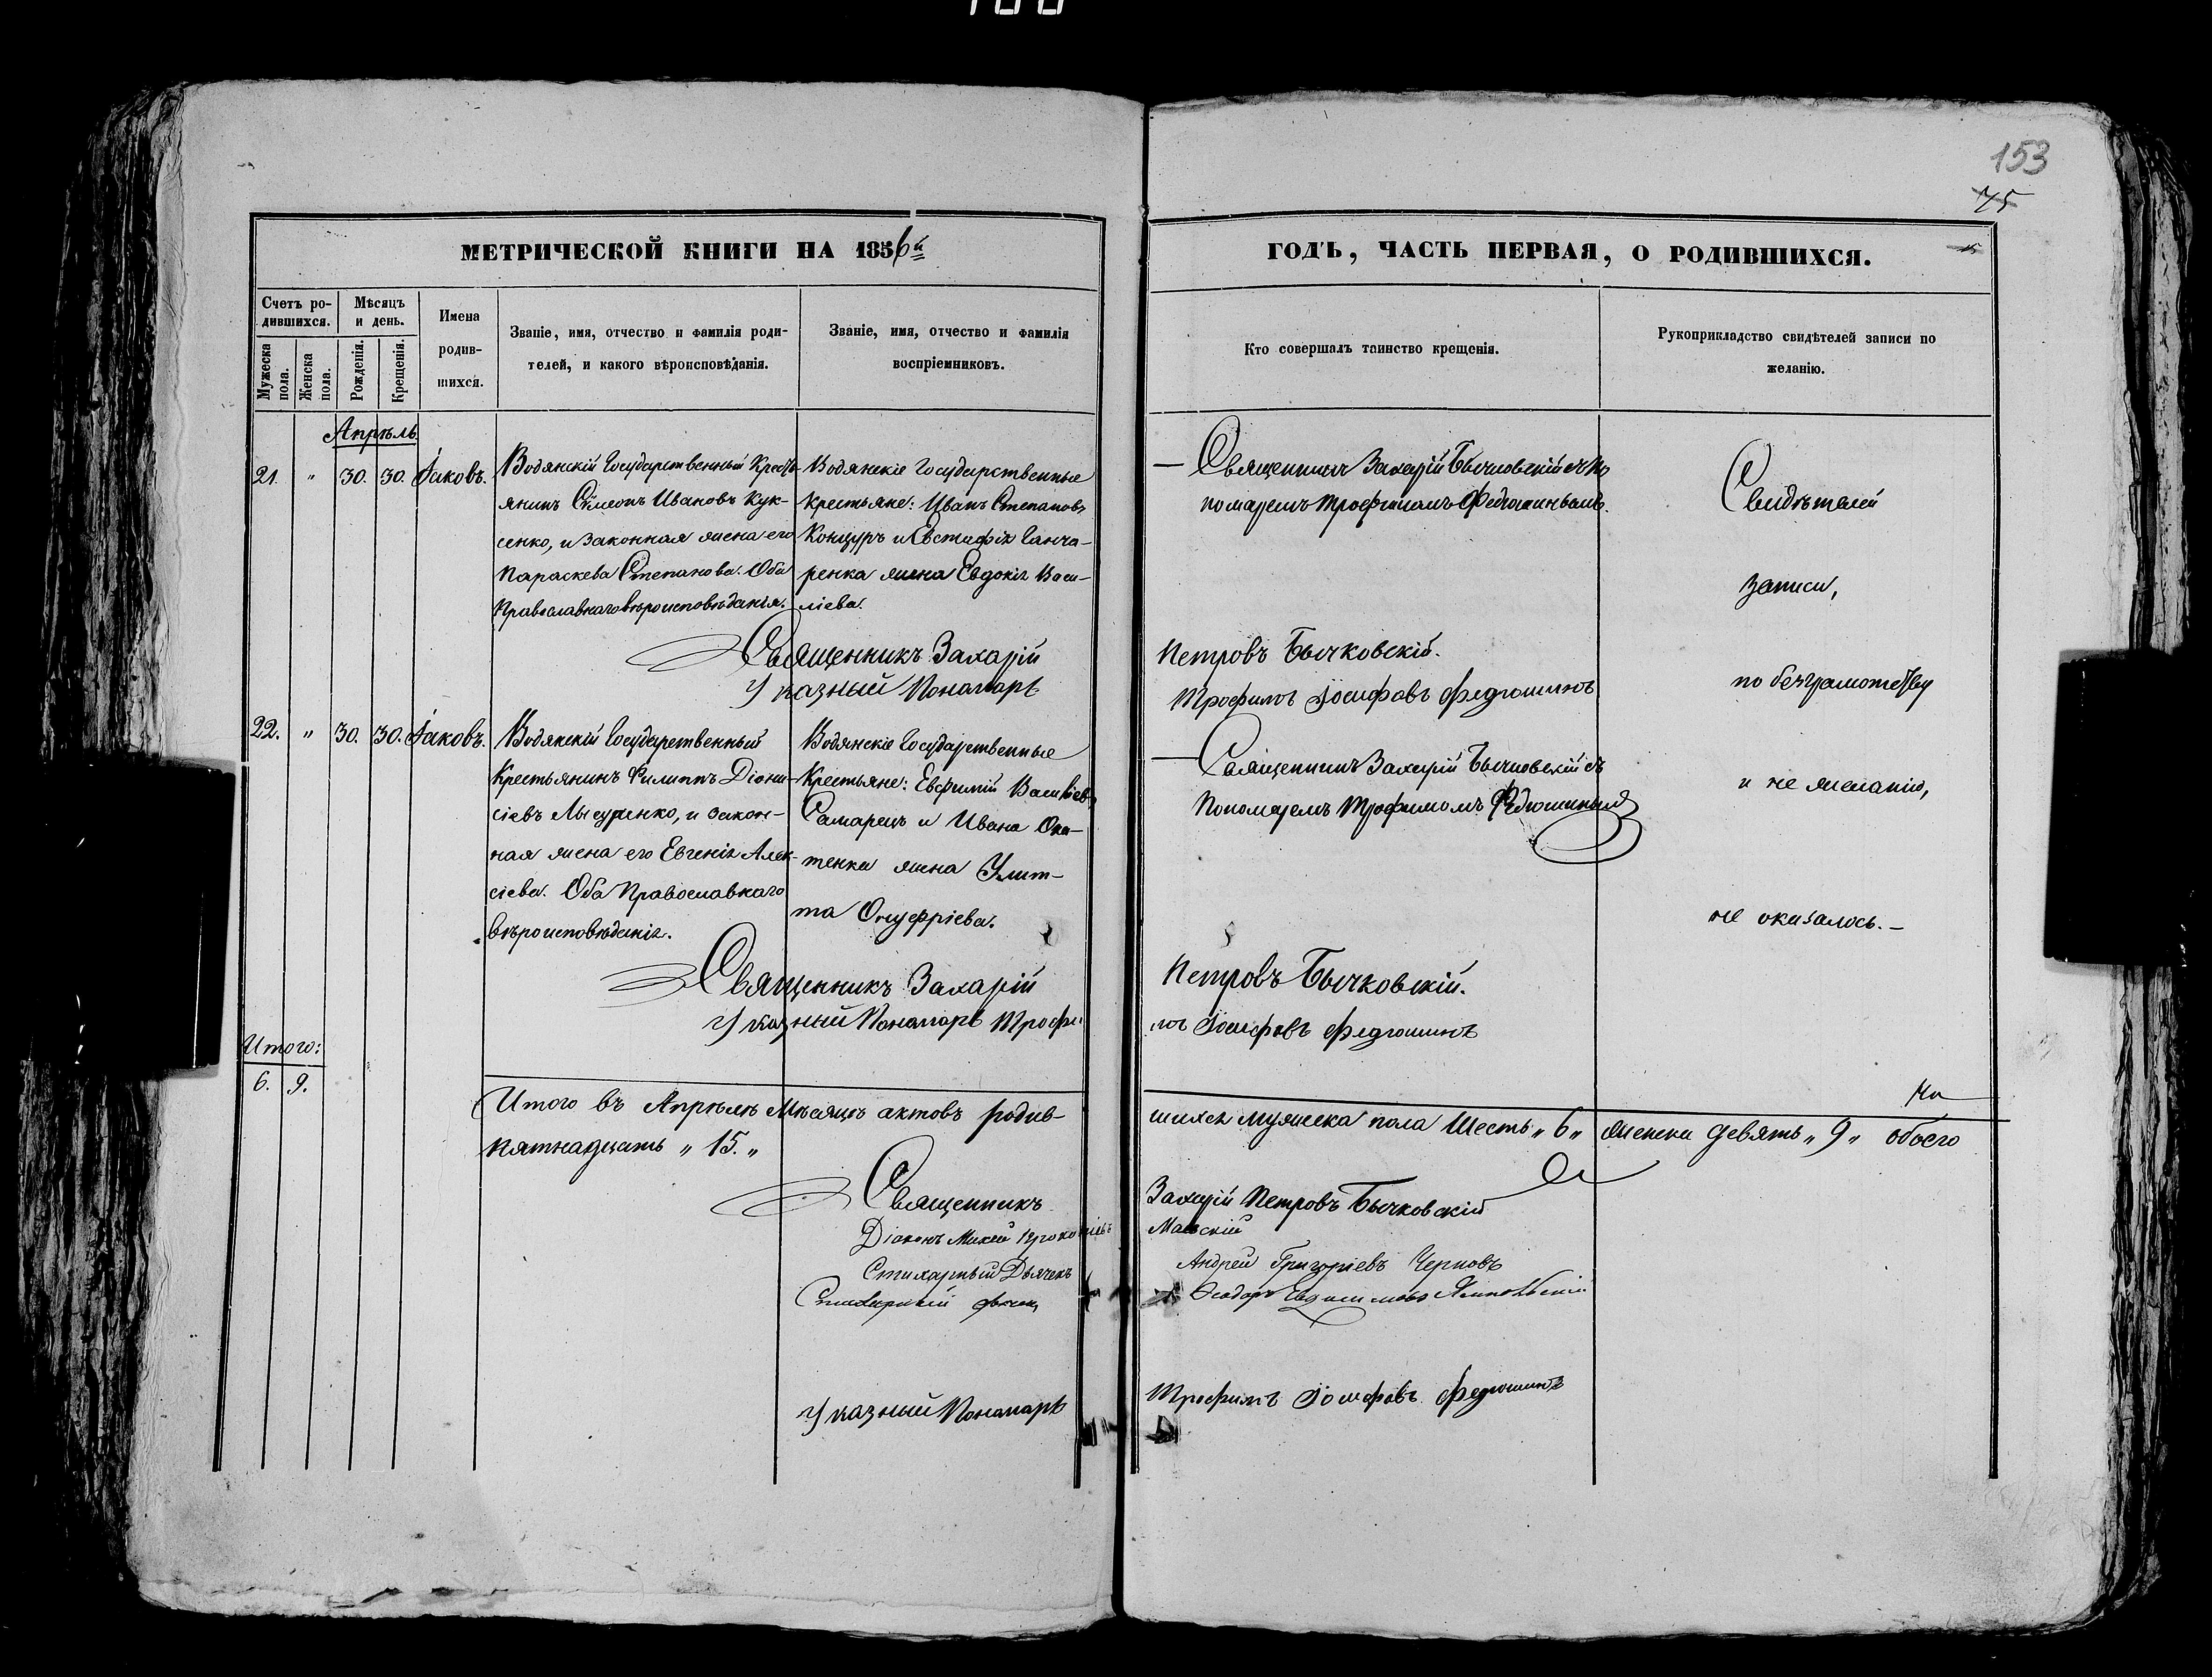 153
75
МЕТРИЧЕСКОЙ КНИГИ НА 1856й
Счетъ ро-
дившихся.
Мѣсяцъ
и день.
Мужеска
пола.
Женска
пола.
Рожденія.
Крещенія.
Имена
родив-
шихся.
Званіе, имя, отчество и фамилія роди-
телей, и какого вѣроисповѣданія.
Званіе, имя, отчество и фамилія
воспріемниковъ.
Апрѣль
21. " 30. 30. Іаковъ.
Водянскій Государственный Кресть-
янинъ Сѵмеонъ Ивановъ Кук-
сенко, и законная жена его
Параскева Степанова. Оба
Православнаго вѣроисповѣданія.
Водянскіе Государственные
Крестьяне: Иванъ Степановъ
Концуръ и Евстафія Ганча-
ренка жена Евдокія Васи-
ліева.
Священникъ Захарій
Указный Понамарь
22. " 30. 30. Іаковъ.
Водянскій Государственный
Крестьянинъ Филиппъ Діони-
сіевъ Лысуренко, и закон-
ная жена его Евгенія Алек-
сіева. Оба Православнаго
вѣроисповѣданія.
Водянскіе Государственные
Крестьяне: Евфимій Василіевъ
Самарецъ и Ивана
тенка жена Улит-
та Онуфріева.
Священникъ Захарій
Указный Понамарь Трофи
Итого:
6. 9.
Итого въ Апрѣлѣ Мѣсяцѣ актовъ родив-
пятнадцать „ 15. „
Священникъ
Діаконъ Михей
Стихарный Дьячекъ
Стихарный
Указный Понамарь
ГОДЪ, ЧАСТЬ ПЕРВАЯ, О РОДИВШИХСЯ.
Кто совершалъ таинство крещенія.
Рукоприкладство свидѣтелей записи по
желанію.
Священникъ Захарій Бычковскій съ По
помаремъ Трофимомъ Федюшинымъ.
Петровъ Бычковскій.
Трофимъ Іосифовъ Федюшинъ
Священникъ Захарій Бычковскій съ
Пономаремъ Трофимомъ Федюшинымъ
Петровъ Бычковскій.
мъ Іосифовъ Федюшинъ
Свидѣтелей
записи,
по безграмотству
и не желанію,
не оказалось. –
шихся мужеска пола Шесть „ 6 „ женска девять „ 9 „ обоего
Захарій Петровъ Бычковскій
Андрей Григоріевъ Черновъ
Ѳеодоръ
Трофимъ Іосифовъ Федюшинъ